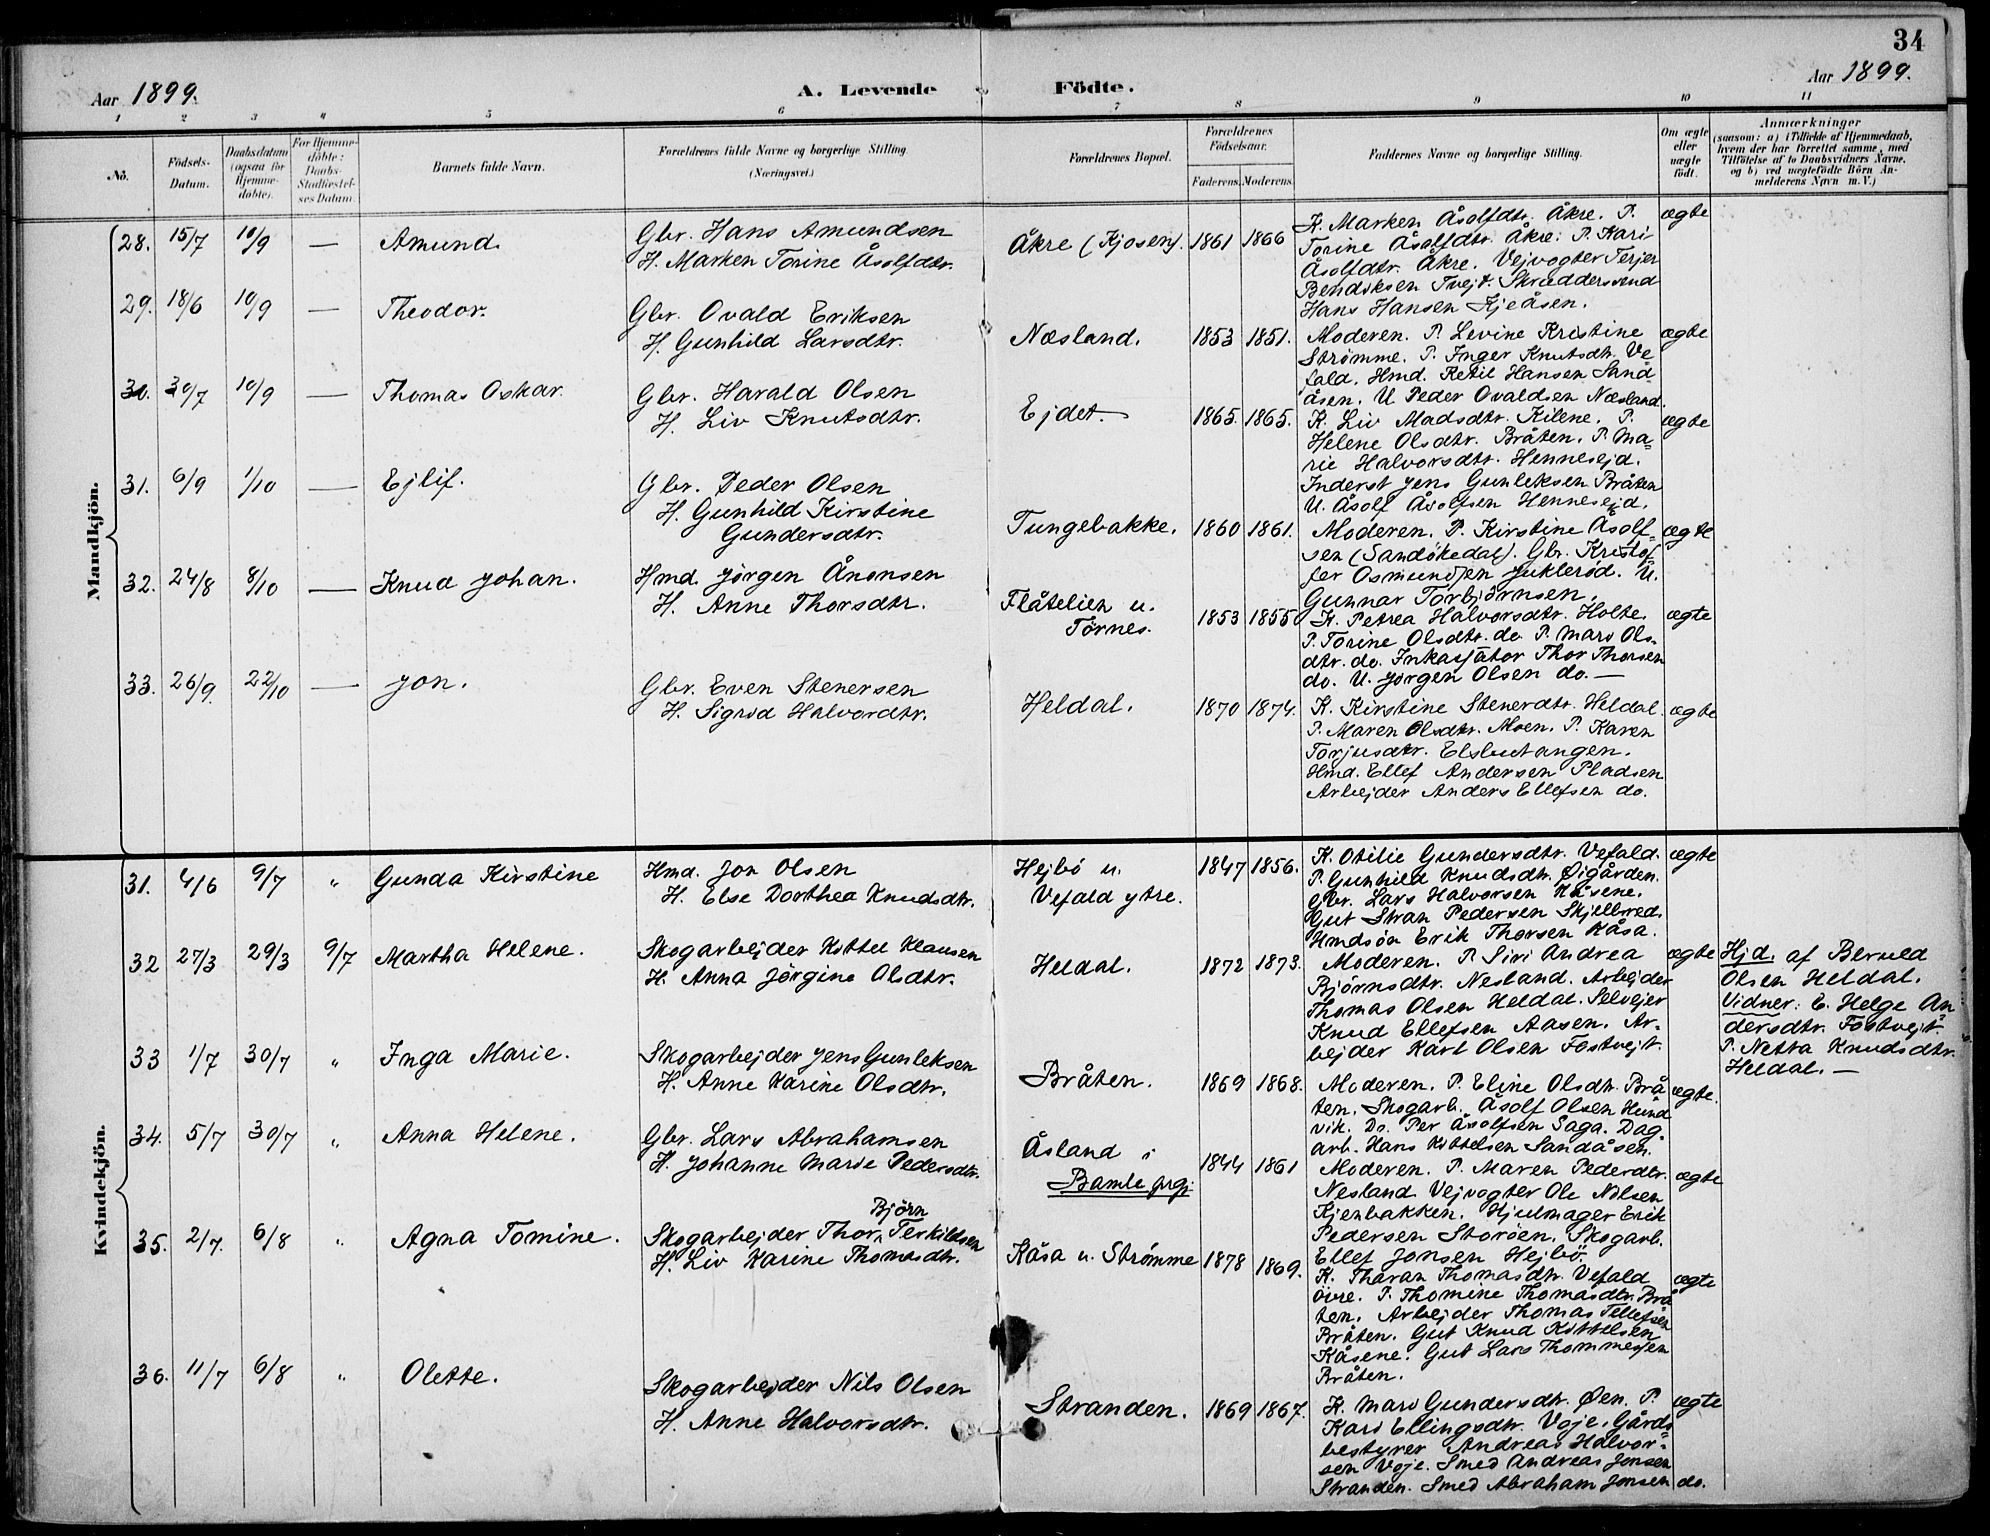 34
Aar 1899.
A. Levende Födte.
Aar 1899.
1 2 3 4 5 6 7 8 9 10 11
No.
Födsels-Datum.
Daabsdatum (ogsaa for Hjemme-döbte).
For Hjemme-döbte: Daabs-Stadfæstel-ses Datum.
Barnets fulde Navn.
Forældrenes fulde Navne og borgerlige Stilling. (Næringsvei.)
Forældrenes Bopæl.
Forældrenes Födselsaar.
Faderens. Moderens.
Faddernes Navne og borgerlige Stilling.
Om ægte eller uægte födt.
Anmærkninger
(saasom: a) i Tilfælde af Hjemmedaab, hvem der har forrettet samme, med Tilföielse af to Daabsvidners Navne, og b) ved uægtefödte Börn An-melderens Navn m.V.)
Mandkjön.
28. 15/7 10/9 — Amund.
Gbr. Hans Amundsen
H. Marken Torine Åsolfdtr.
Åkre (Kjosen). 1861 1866
K. Marken Åsolfdtr. Åkre. P.
Torine Åsolfdtr. Åkre. P. Kari
Åsolfdtr. Åkre. Vejvogter Terjer
Bendiksen Tvejt. Skræddersvend
Hans Hansen Kjeåsen.
ægte
29. 18/6 10/9 — Theodor.
Gbr. Ovald Eriksen
H. Gunhild Larsdtr.
Næsland. 1853 1851.
Moderen. P. Levine Kristine
Strømme. P. Inger Knutsdtr. Ve
fald. Hmd. Ketil Hansen Sand
åsen. U. Peder Ovaldsen Næsland.
ægte
30. 30/7 10/9 — Thomas Oskar.
Gbr. Harald Olsen
H. Liv Knutsdtr.
Ejdet. 1865. 1865.
K. Liv Madsdtr. Kilene. P.
Helene Olsdtr. Bråten. P. Ma-
rie Halvorsdtr. Hennesejd.
Inderst Jens Gunleksen Bråten
U. Åsolf Åsolfsen Hennesejd.
ægte
31. 6/9 1/10 — Ejlif.
Gbr. Peder Olsen
H. Gunhild Kirstine
Gundersdtr.
Tungebakke. 1860 1861.
Moderen. P. Kirstine Åsolf-
sen (Sandökedal). Gbr. Kristof
fer Osmundsen Juklerød. U.
Gunnar Torbjörnsen.
ægte
32. 24/8 8/10 — Knud Johan.
Hmd. Jörgen Ånonsen
H. Anne Thorsdtr.
Flåtelien u.
Törnes. 1853 1855
K. Petrea Halvorsdtr. Holte.
P. Torine Olsdtr. do P. Mari Ols-
dtr. do. Inkassator Thor Thorsen
do. U. Jörgen Olsen do. —
ægte
33. 26/9. 22/10 — Jon.
Gbr. Even Stenersen
H. Sigrid Halvordtr.
Heldal. 1870 1874.
K. Kirstine Stenerdtr. Heldal.
P. Maren Olsdtr. Moen. P. Karen
Torjusdtr. Elsbutangen.
Hmd. Ellef Andersen Pladsen
Arbejder Anders Ellefsen do.
ægte
Kvindekjön.
31. 4/6 9/7 " Gunda Kirstine
Hmd. Jon Olsen
H. Else Dorthea Knudsdtr.
Hejbö u.
Vefald ytre. 1847 1856.
K. Otilie Gundersdtr. Vefald.
P. Gunhild Knudsdtr. Øigården.
Gbr. Lars Halvorsen Kåsene.
Gut Stran Pedersen Skjelbred.
Hmdsön Erik Thorsen Kåsa.
ægte
32 27/3 29/3 9/7 Martha Helene.
Skogarbejder Kittel Klausen
H. Anna Jörgine Olsdtr.
Heldal. 1872 1873.
Moderen. P. Siri Andrea
Björnsdtr. Nesland. Arbejder
Thomas Olsen Heldal. Selvejer
Knud Ellefsen Aasen. Ar-
bejder Karl Olsen Fostvejt.
ægte
Hjd. af Berueld
Olsen Heldal.
Vidner: E. Helge An
dersdtr. Fostvejt.
P. Netta Knudsdtr.
Heldal. —
33 1/7 30/7 " Inga Marie.
Skogarbejder Jens Gunleksen
H. Anne Karine Olsdtr.
Bråten. 1869 1868.
Moderen. P. Eline Olsdtr. Brå
ten. Skogarb. Åsolf Olsen Hund
vik. Do. Per Åsolfsen Saga. Dag-
arb. Hans Kittelsen Sandåsen.
ægte.
34. 5/7 30/7 " Anna Helene.
Gbr. Lars Abrahamsen
H. Johanne Marie Pedersdtr.
Åsland i
Bamle prgj. 1844 1861
Moderen. P. Maren Pederdtr.
Nesland. Vejvogter Ole Nilsen
Kjenbakken. Hjulmager Erik
Pedersen Storöen. Skogarb.
Ellef Jonsen Hejbö.
ægte
35. 2/7. 6/8 " Agna Tomine.
Björn
Skogarbejder Thor Terkildsen
H. Liv Karine Thomasdtr.
Kåsa u. Strömme 1878 1869.
K. Tharan Thomasdtr. Vefald
övre. P. Thomine Thomasdtr. Brå
ten. Arbejder Thomas Tellefsen
Bråten. Gut Knud Kittelsen
Kåsene. Gut Lars Thommesen
Bråten.
ægte
36. 11/7 6/8 " Olette.
Skogarbejder Nils Olsen
H. Anne Halvorsdtr.
Stranden. 1869 1867.
K. Mari Gundersdtr. Øen. P.
Kari Ellingsdtr. Voje. Gårds
bestyrer Andreas Halvor-
sen Voje. Smed Andreas Jonsen
Stranden. Smed Abraham Jonsen do.
ægte